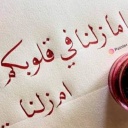 أما زلنا في قلوبكم
ام زلنا